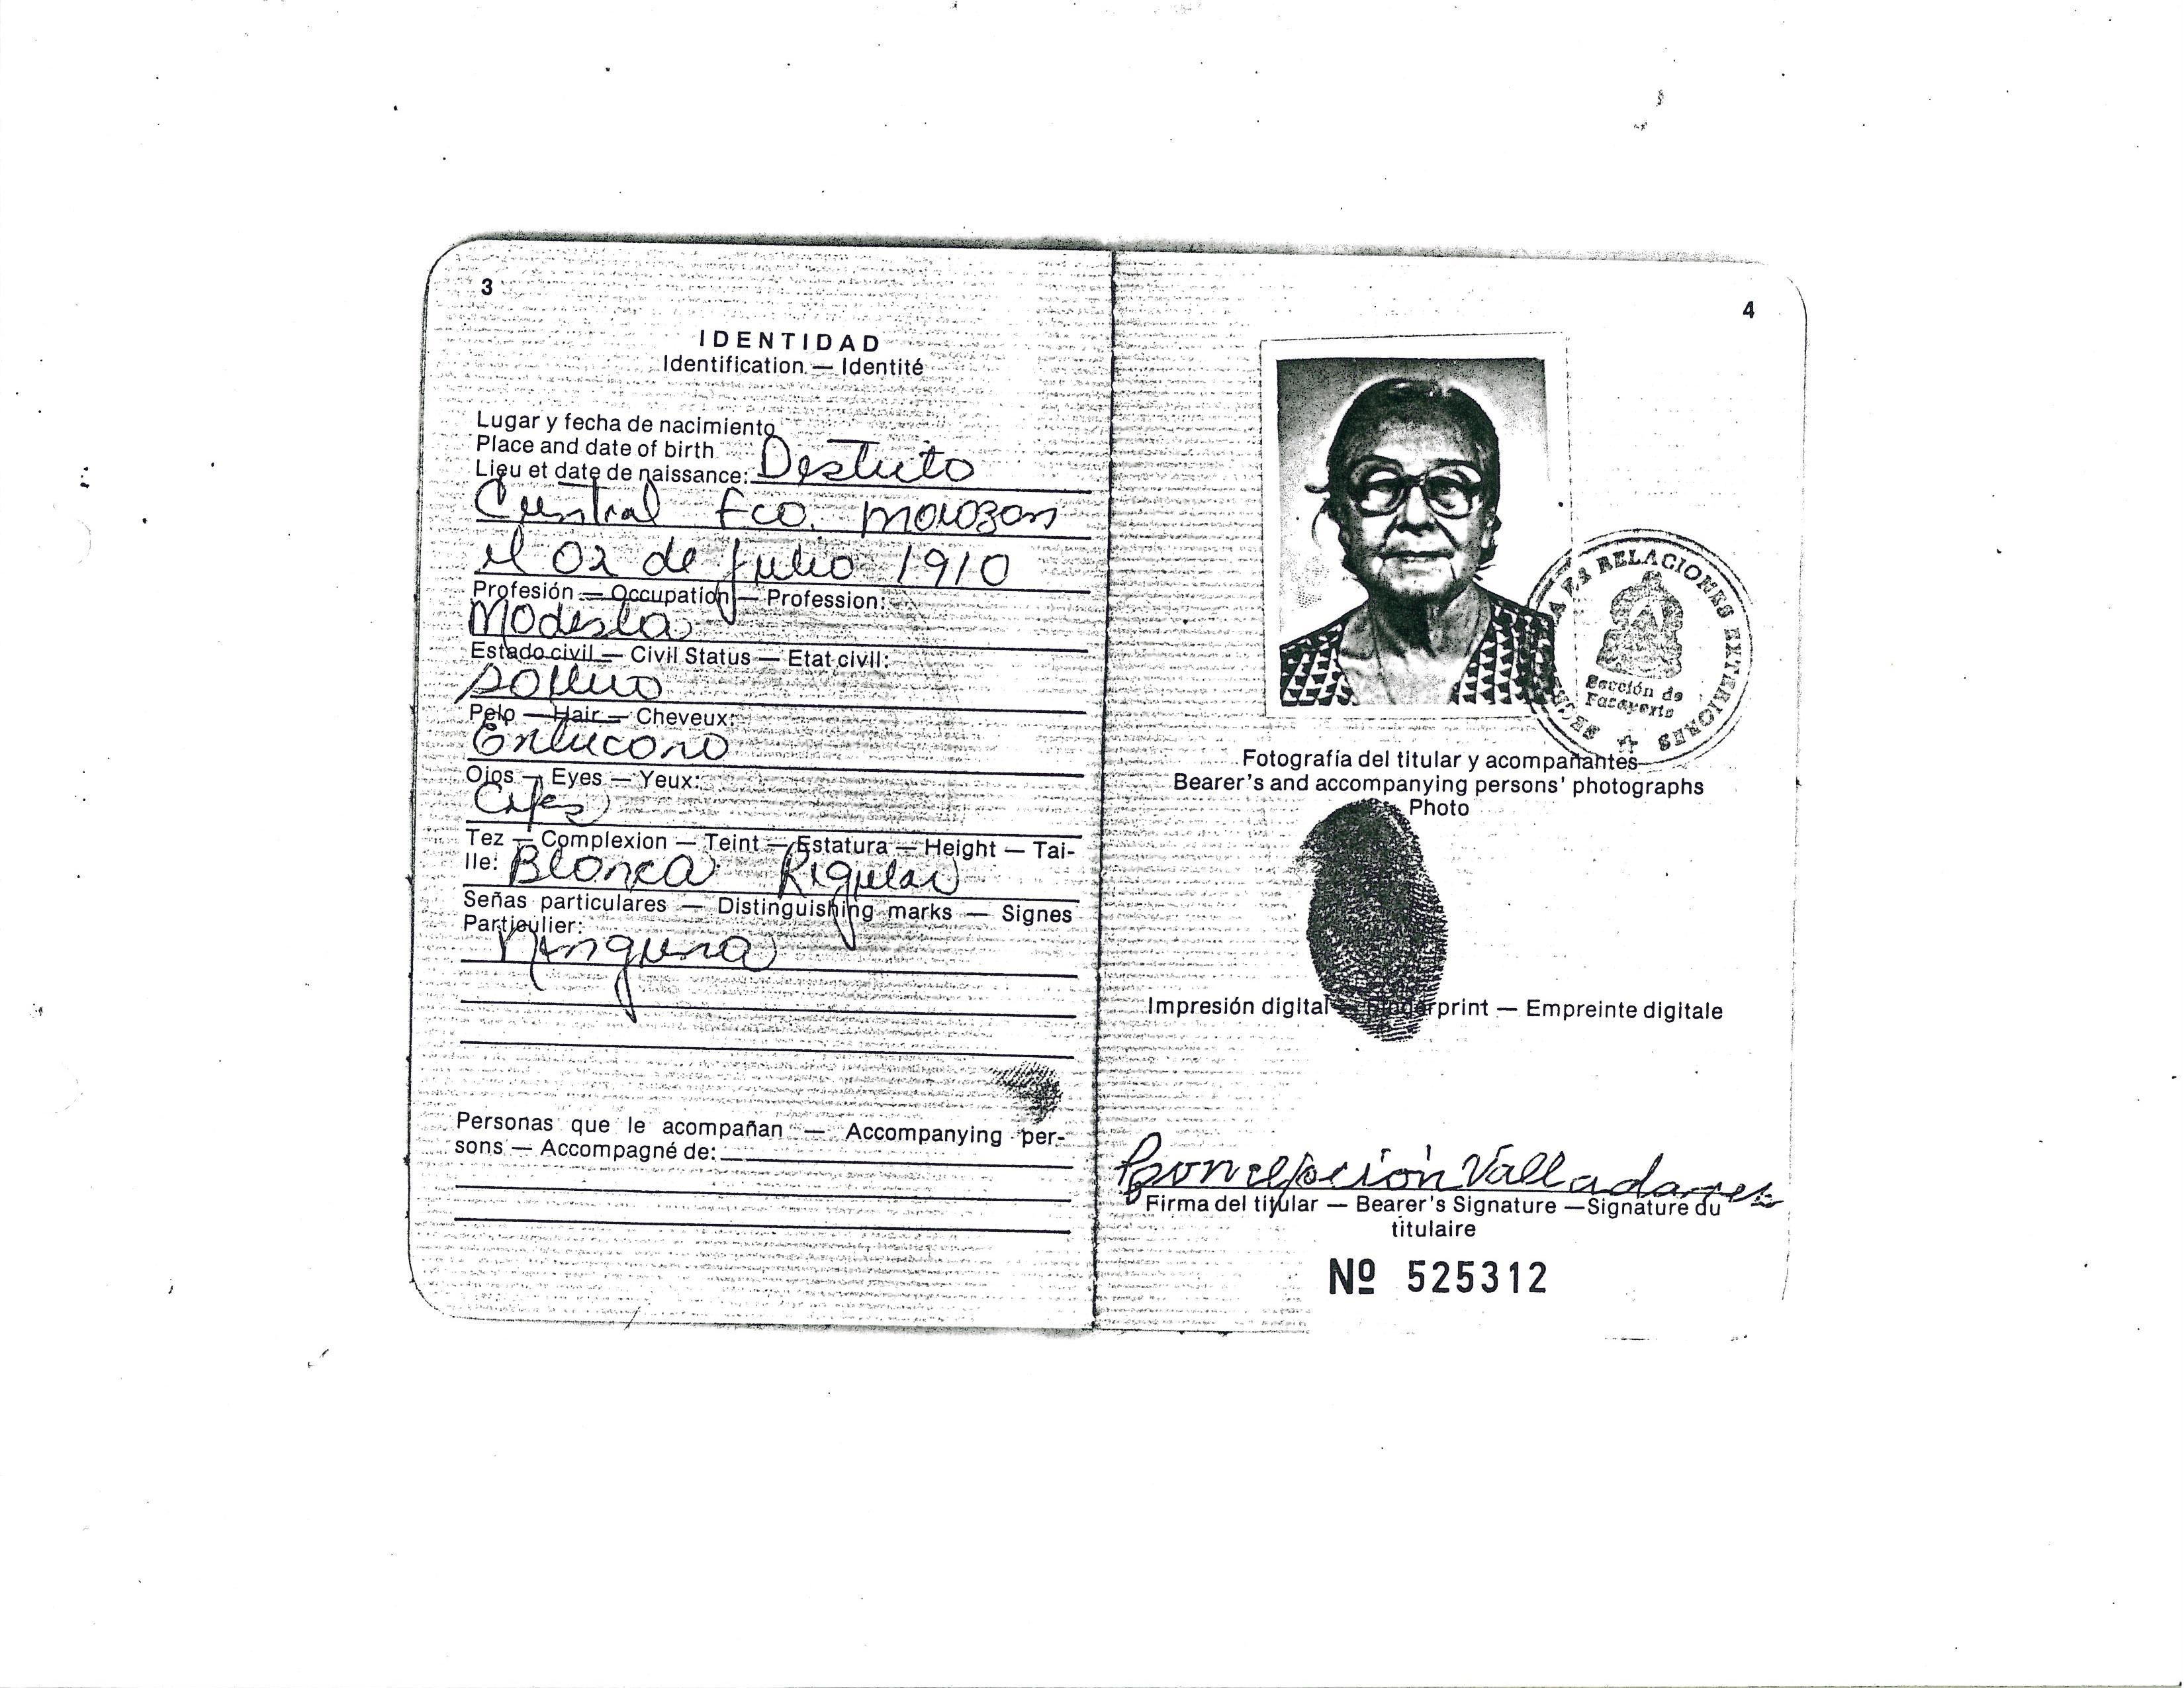 3
IDENTIDAD
Identification — Identité
Lugar y fecha de nacimiento
Place and date of birth
Lieu et date de naissance: Distrito
Central Fco. Morazan
el 02 de Julio 1910
Profesión — Occupation — Profession:
Modista
Estado civil — Civil Status — Etat civil:
Soltera
Pelo — Hair — Cheveux:
Entrecano
Ojos — Eyes — Yeux:
Cafes
Tez — Complexion — Teint — Estatura — Height — Tai-
lle: Blanca Regular
Señas particulares — Distinguishing marks — Signes
Particulier:
Ninguna
Personas que le acompañan — Accompanying per-
sons — Accompagné de:
4
RELACIONES EXTERIORES
Sección de
Fotografía del titular y acompañantes
Bearer's and accompanying persons' photographs
Photo
Impresión digital — Fingerprint — Empreinte digitale
Concepción Valladares
Firma del titular — Bearer's Signature — Signature du
titulaire
Nº 525312